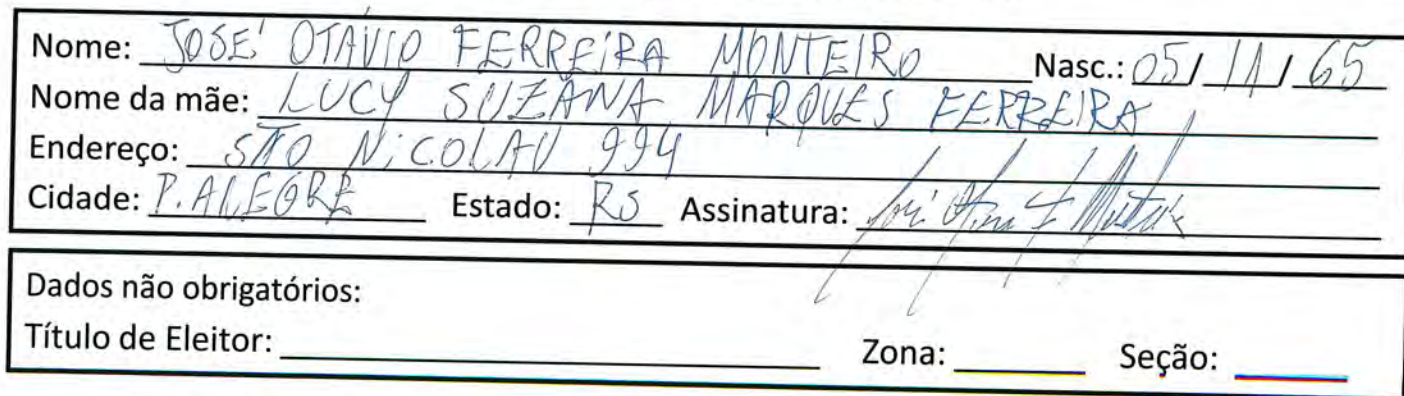 Nome: JOSÉ OTÁVIO FERREIRA MONTEIRO Nasc.: 05/11/65
Nome da mãe: LUCY SUZANA MARQUES FERREIRA
Endereço: SÃO NiCOLAU 994
Cidade: P. ALEGRE Estado: RS Assinatura:
Dados não obrigatórios:
Título de Eleitor: Zona: Seção: